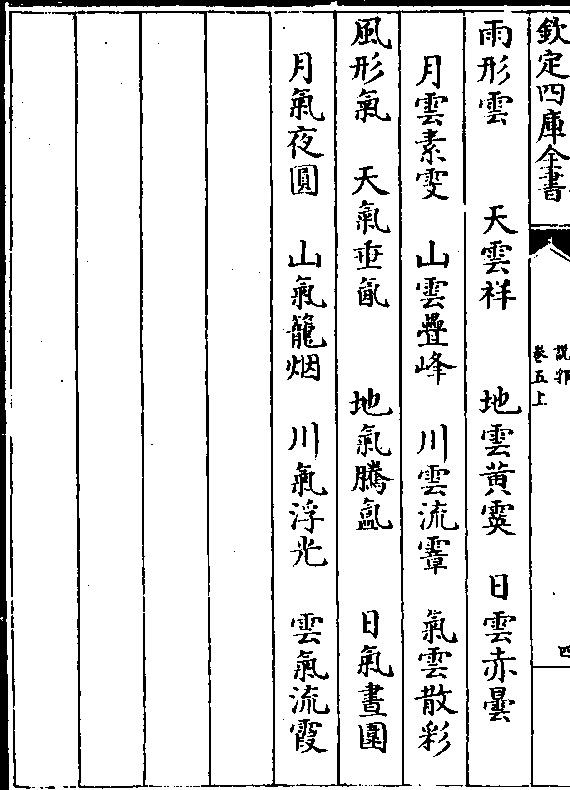 欽定四庫全書
說郛
卷五上
四
雨形雲　天雲祥　地雲黃霙　日雲赤曇
月雲素雯　山雲疊峰　川雲流　氣雲散彩
風形氣　天氣垂氤　地氣騰氳　日氣晝圍
月氣夜圓　山氣籠烟　川氣浮光　雲氣流霞